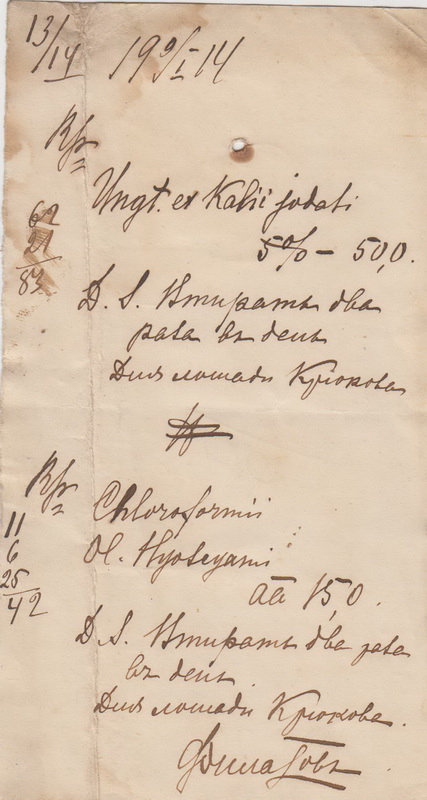 13/14 19 9/I 14
Rp
Ungt. ex Kalii jodati
5% – 50,0.
62
21
83
D. S. Втирать два
раза въ день
Для лошади Крюкова
#
Rp
Chloroformii
11
6
25
42
Ol. Hyoscyami
āā 15,0.
D. S. Втирать два раза
въ день.
Для лошади Крюкова.